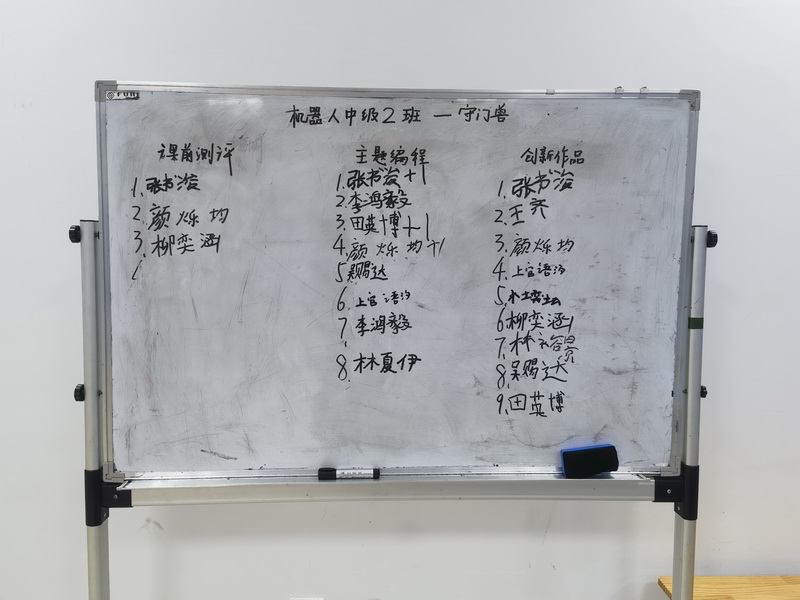 机器人中级2班 — 守门兽
课前测评
1. 张书浚
2. 颜烁均
3. 柳奕涵
主题编程
1. 张书浚+1
2. 李鸿毅
3. 田英博+1
4. 颜烁均+1
5. 吴赐达
6. 上官语汐
7. 李鸿毅
8. 林夏伊
创新作品
1. 张书浚
2. 王齐
3. 颜烁均
4. 上官语汐
5.
6. 柳奕涵
7. 林
8. 吴赐达
9. 田英博